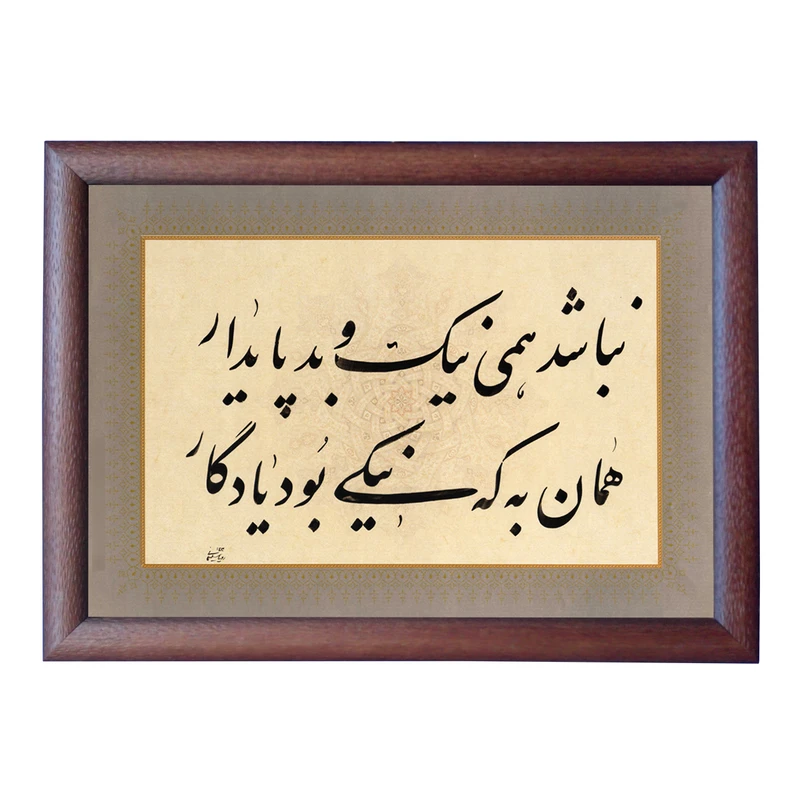 نباشد همی نیک و بد پایدار
همان به که نیکی بود یادگار